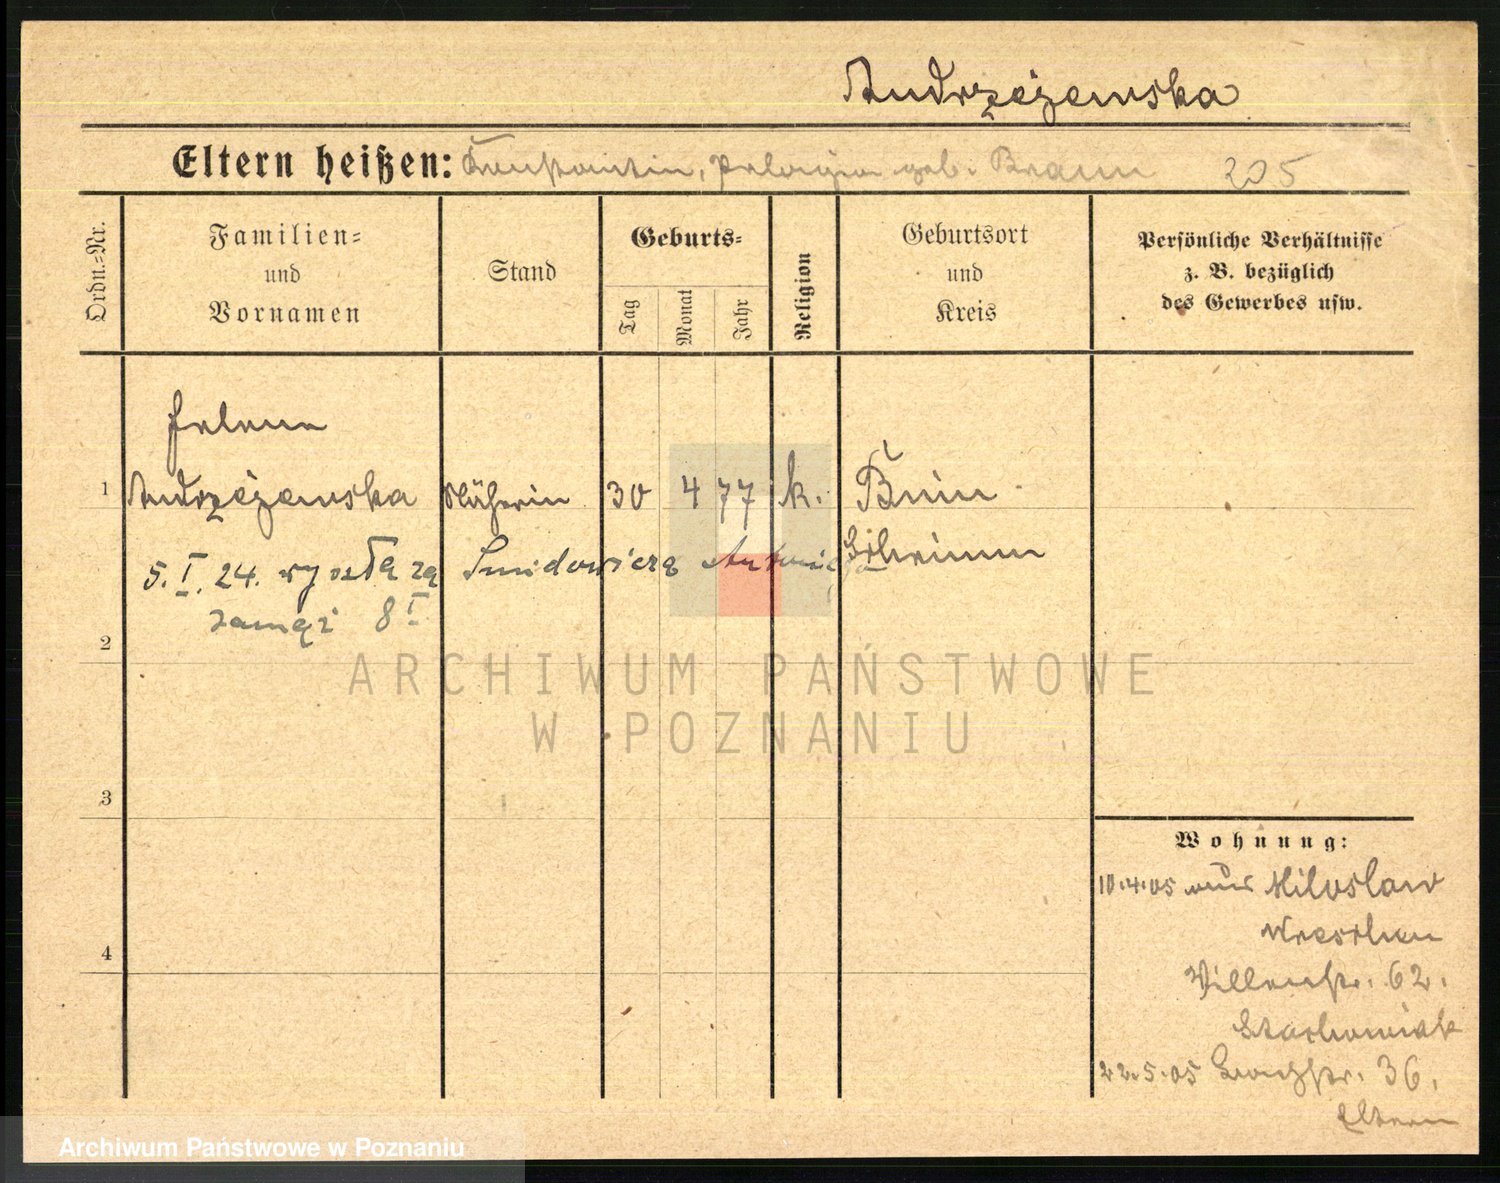 Andrzejewska
Eltern heißen: Konstantin, Pelagia geb. Braun 205
Ordn.-Nr.
Familien-
und
Vornamen
Stand
Geburts-
Tag
Monat
Jahr
Religion
Geburtsort
und
Kreis
Persönliche Verhältnisse
z. B. bezüglich
des Gewerbes usw.
Helene
1 Andrzejewska Näherin 30 4 77 k. Bnin
Schrimm
5.I.24. wyszła za Antoniego
zamąż 8 I
2
3
4
ARCHIWUM PAŃSTWOWE
W POZNANIU
Wohnung:
10.4.05 aus Miloslaw
Wreschen
Villenstr. 62.
Stachowiak
22.5.05 36.
Eltern
Archiwum Państwowe w Poznaniu